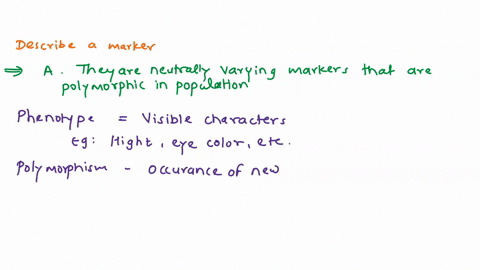 Describe a marker
⇒ A. They are neutrally varying markers that are
polymorphic in population
Phenotype = Visible characters
Eg: Hight, eye color, etc.
Polymorphism - Occurance of new